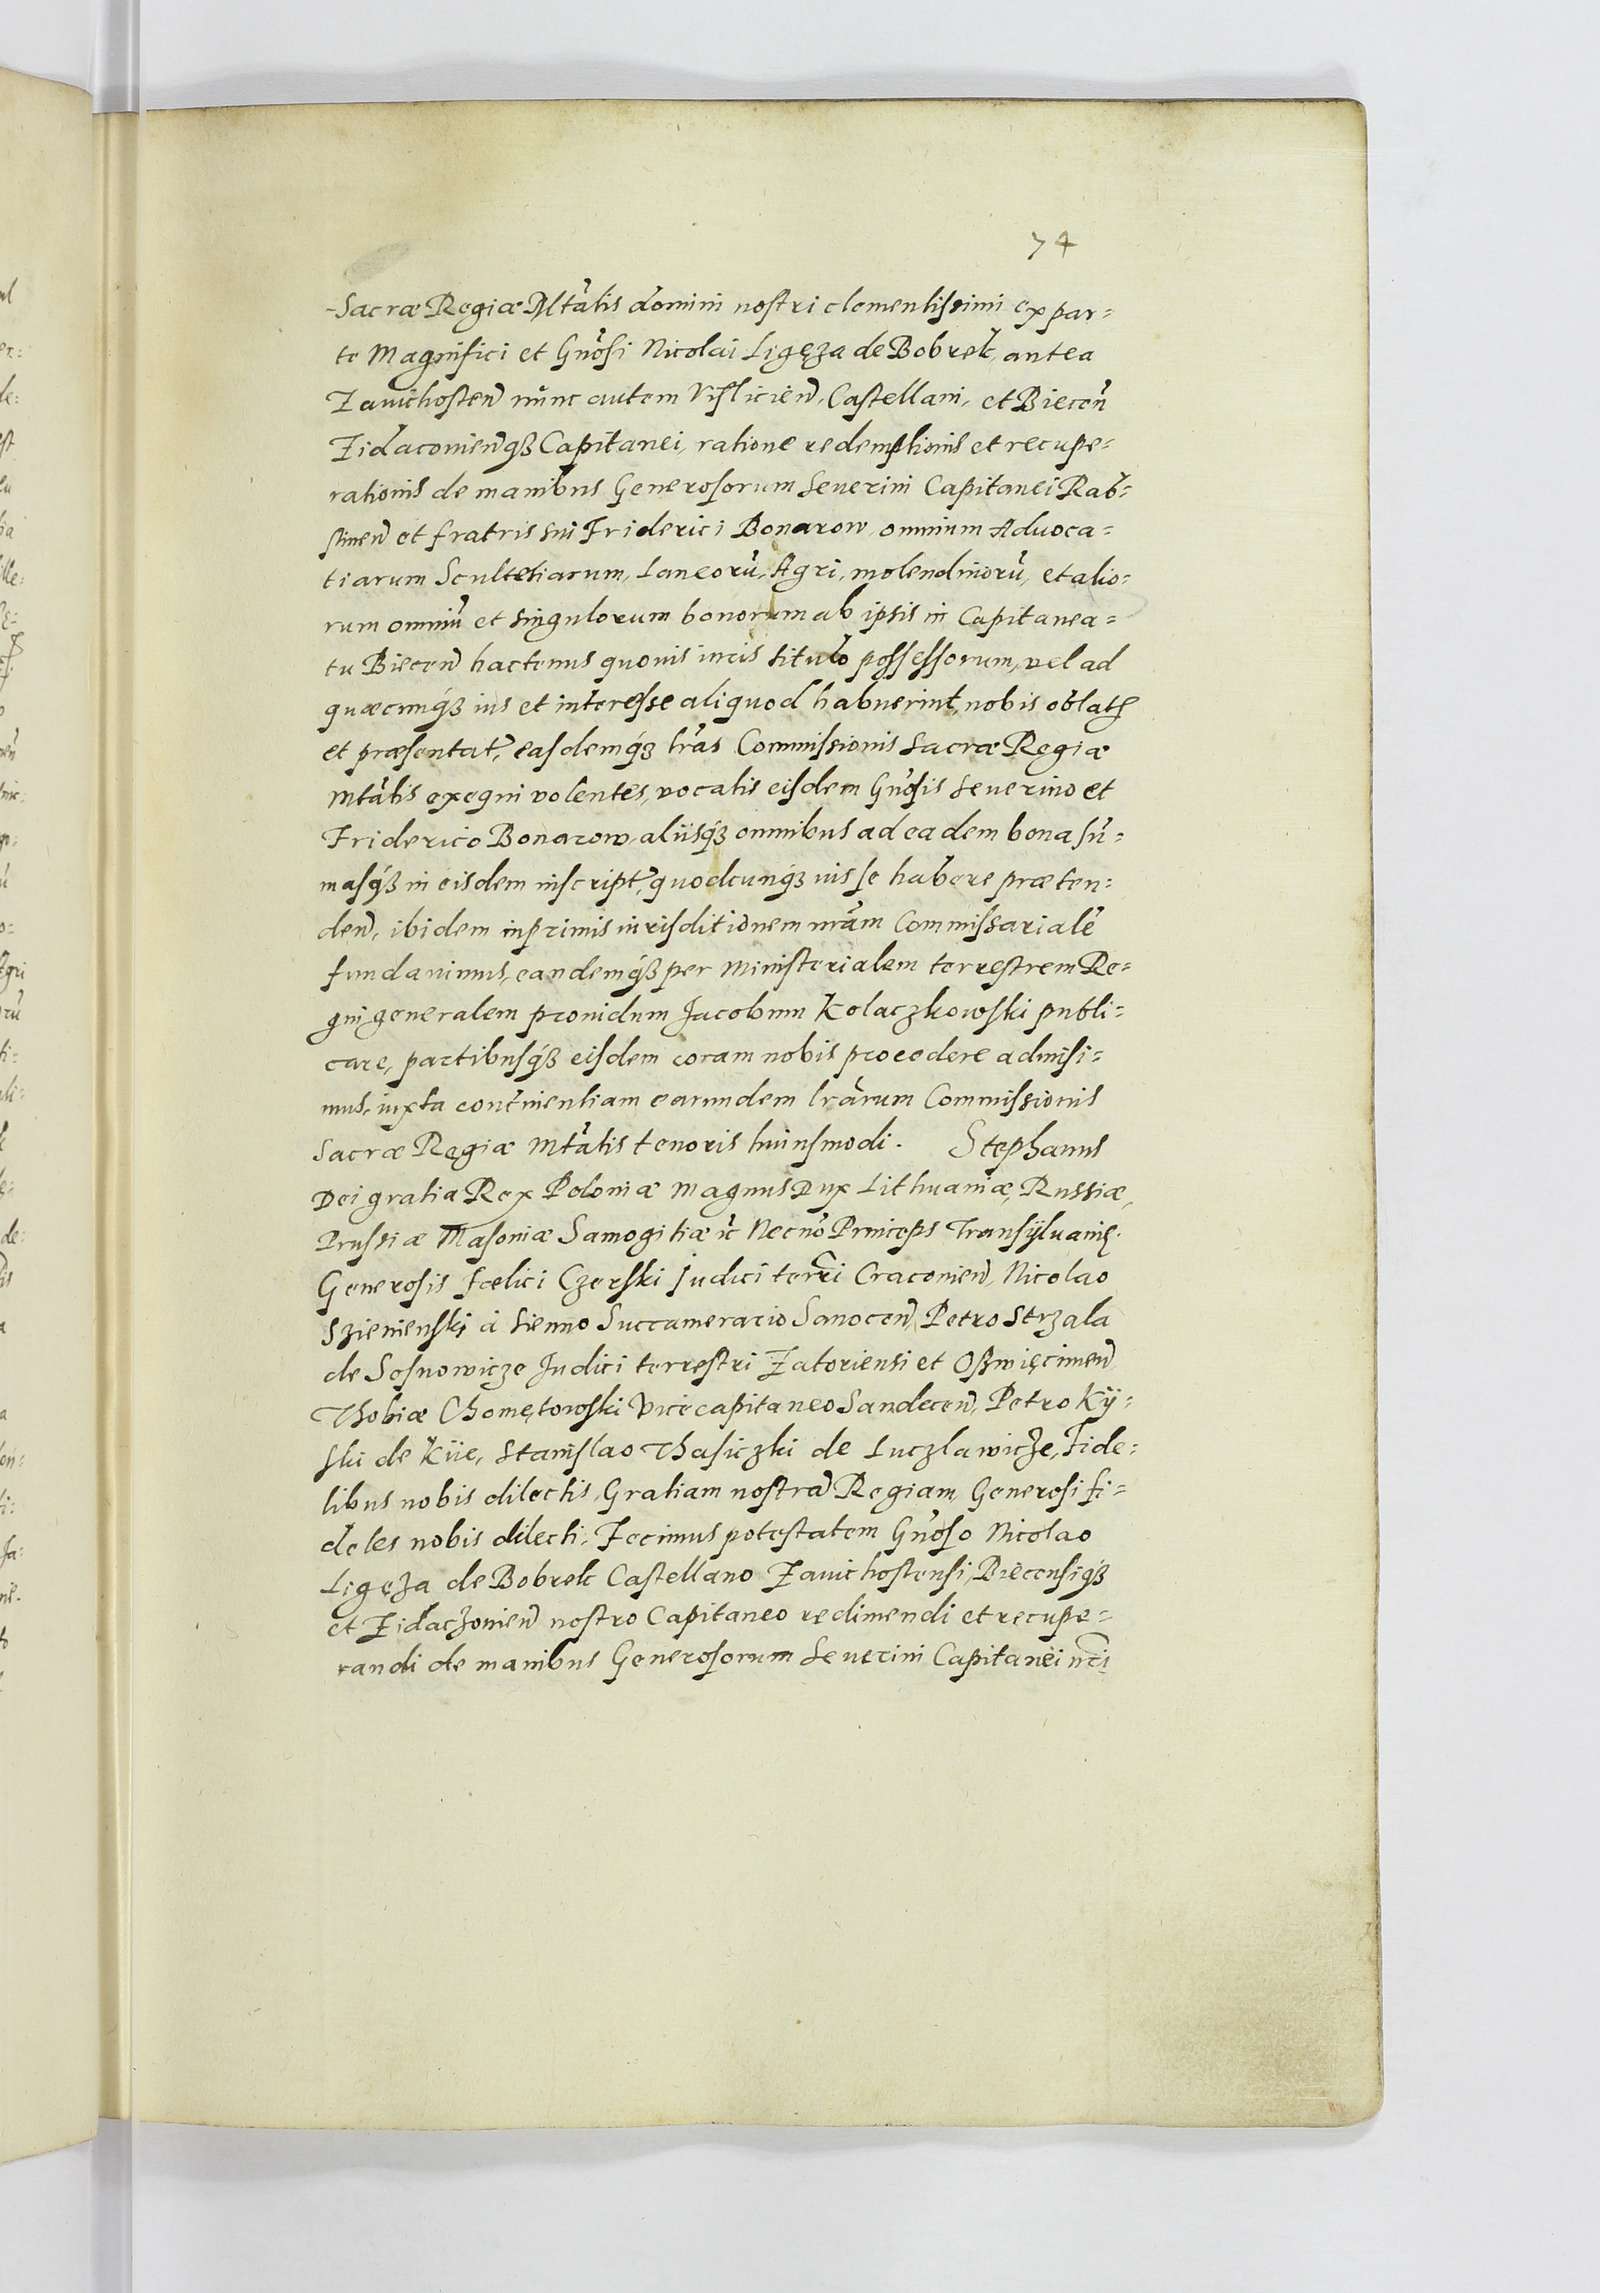 74
Sacræ Regiæ Mtãtis domini nostri clementissimi ex par=
te Magnifici et Gnõsi Nicolai Ligęza de Bobrek, antea
Zauichosteñ nunc autem Vislicieñ, Castellani, et Bieceñ
Zidacouieñqȝ Capitanei, ratione redemptionis et recupe=
rationis de manibus Generosorum Seuerini Capitanei Rab=
stineñ et fratris sui Friderici Bonarow, omnium Aduoca=
tiarum Scultetiarum, Laneorũ, Agri, molendinorũ, et alio=
rum omniũ et singulorum bonorum ab ipsis in Capitanea=
tu Bieceñ hactenus quouis iuris titulo possessorum, vel ad
quæcunqȝ ius et interesse aliquod habuerint, nobis oblatꝭ
et præsentat, easdemqȝ lrãs Commissionis Sacræ Regiæ
Mtãtis exequi volentes, vocatis eisdem Gnõsis Seuerino et
Friderico Bonarow, aliisqȝ omnibus ad eadem bona sũ=
masqȝ in eisdem inscript, quodcunqȝ ius se habere præten=
deñ, ibidem inprimis iurisditionem nrãm Commissarialẽ
fundauimus, eandemqȝ per Ministerialem terrestrem Re=
gni generalem prouidum Jacobum Kolaczkowski publi=
care, partibusqȝ eisdem coram nobis procedere admisi=
mus, iuxta continentiam earundem lrãrum Commissionis
Sacræ Regiæ Mtãtis tenoris huiusmodi. Stephanus
Dei gratia Rex Poloniæ Magnus Dux Lithuaniæ, Russiæ,
Prussiæ Masouiæ Samogitiæ ĩc Necnõ Princeps Transyluanię.
Generosis Fœlici Czerski Judici terrĩ Cracouieñ, Nicolao
Szienienski à Sienno Succamerario Sanoceñ, Petro Strzala
de Sosnowicze Judici terrestri Zatoriensi et Oszwięcimeñ
Thobiæ Chomętowski Vicecapitaneo Sandeceñ, Petro Ky=
ski de Kije, Stanislao Thasiczki de Luczlawicze, Fide=
libus nobis dilectis, Gratiam nostrã Regiam, Generosi fi=
deles nobis dilecti, Fecimus potestatem Gnõso Nicolao
Ligęza de Bobrek Castellano Zauichostensi, Biecensiqȝ
et Zidaczouieñ nostro Capitaneo redimendi et recupe=
randi de manibus Generosorum Seuerini Capitanei nrĩ